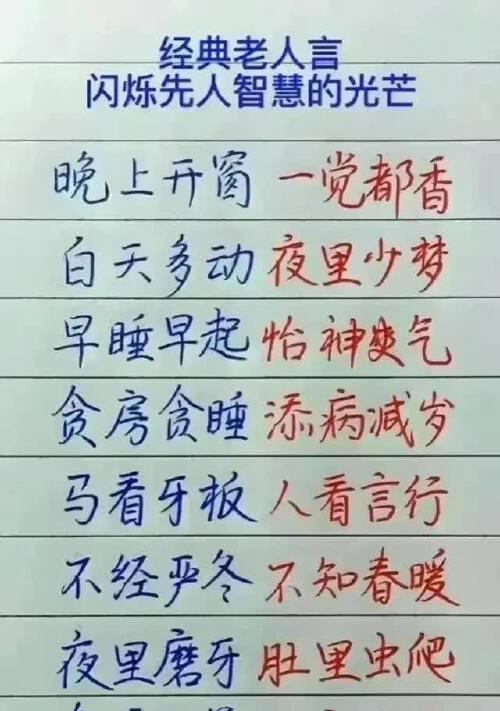 经典老人言
闪烁先人智慧的光芒
晚上开窗 一觉都香
白天多动 夜里少梦
早睡早起 怡神爽气
贪房贪睡 添病减岁
马看牙板 人看言行
不经严冬 不知春暖
夜里磨牙 肚里虫爬